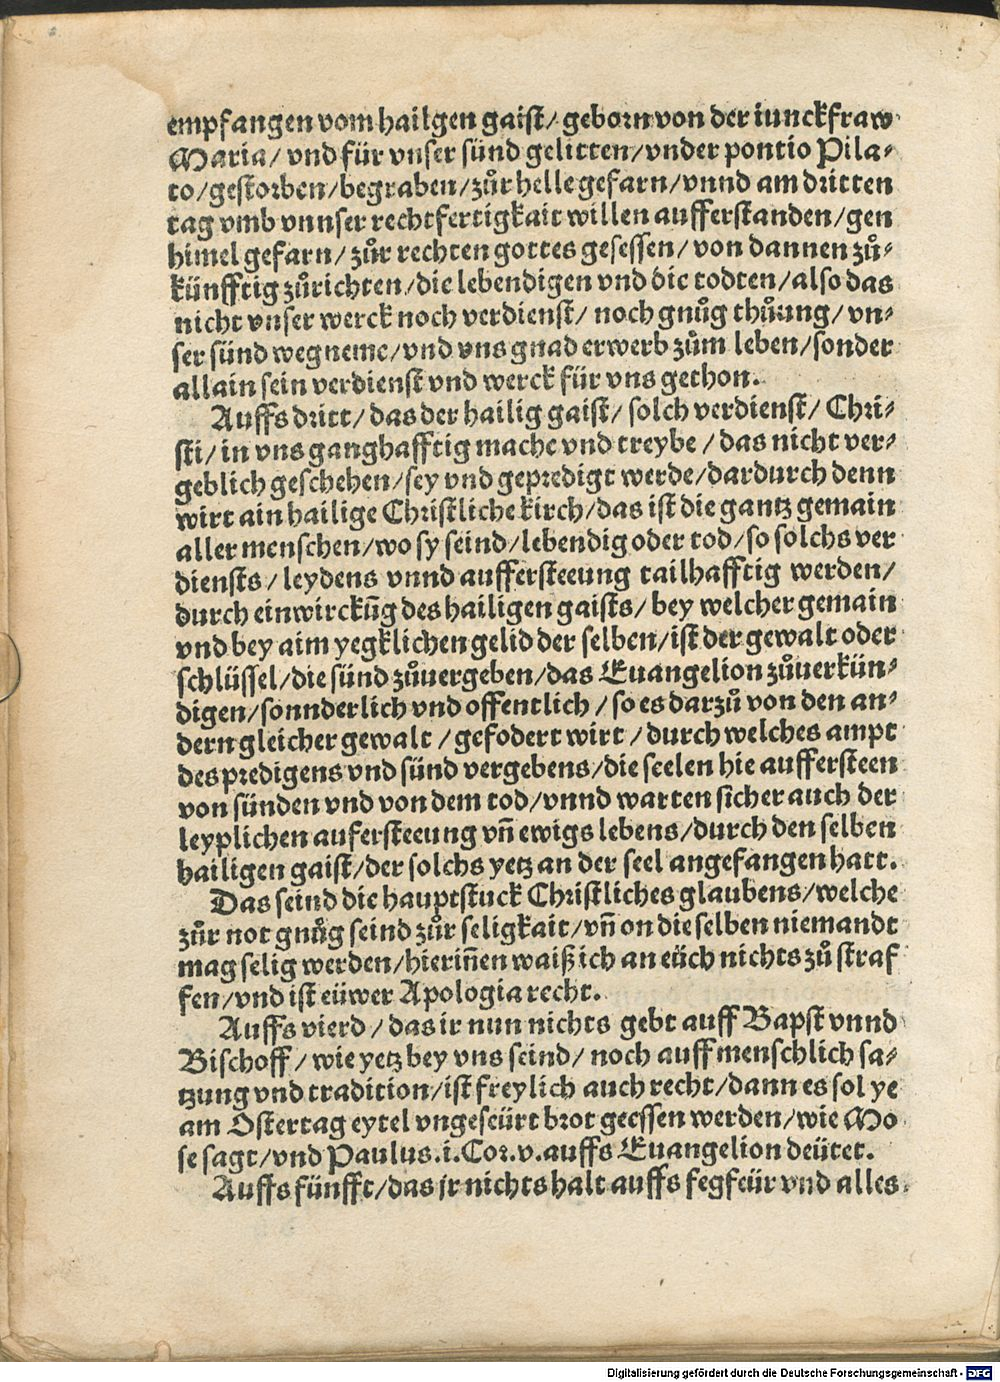 empfangen vom hailgen gaist/ geborn von der iunckfraw
Maria/ vnd für vnser sünd gelitten/vnder pontio Pila⸗
to/gestorben/begraben/zůr helle gefarn/vnnd am dritten
tag vmb vnnser rechtfertigkait willen aufferstanden/gen
himel gefarn/ zůr rechten gottes gesessen/ von dannen zů⸗
künfftig zůrichten/die lebendigen vnd die todten/also das
nicht vnser werck noch verdienst/ noch gnůg thůung/ vn⸗
ser sünd wegneme/vnd vns gnad erwerb zům leben/sonder
allain sein verdienst vnd werck für vns gethon.
Auffs dritt/ das der hailig gaist/ solch verdienst/ Chri⸗
sti/ in vns ganghafftig mache vnd treybe/ das nicht ver⸗
geblich geschehen/sey vnd gepredigt werde/dardurch denn
wirt ain hailige Christliche kirch/das ist die gantz gemain
aller menschen/wo sy seind/lebendig oder tod/so solchs ver
diensts/ leydens vnnd auffersteeung tailhafftig werden/
durch einwirckūg des hailigen gaists/ bey welcher gemain
vnd bey aim yegklichen gelid der selben/ist der gewalt oder
schlüssel/die sünd zůuergeben/das Euangelion zůuerkün⸗
digen/sonnderlich vnd offentlich/ so es darzů von den an⸗
dern gleicher gewalt/ gefodert wirt/ durch welches ampt
des predigens vnd sünd vergebens/die seelen hie auffersteen
von sünden vnd von dem tod/vnnd warten sicher auch der
leyplichen aufersteeung vn̄ ewigs lebens/durch den selben
hailigen gaist/der solchs yetz an der seel angefangen hatt.
Das seind die hauptstuck Christliches glaubens/welche
zůr not gnůg seind zůr seligkait/vn̄ on die selben niemandt
mag selig werden/hierin̄en waiß ich an eüch nichts zů straf
fen/vnd ist eüwer Apologia recht.
Auffs vierd/ das ir nun nichts gebt auff Bapst vnnd
Bischoff/ wie yetz bey vns seind/ noch auff menschlich sa⸗
tzung vnd tradition/ist freylich auch recht/dann es sol ye
am Ostertag eytel vngeseürt brot geessen werden/wie Mo
se sagt/vnd Paulus.i.Cor.v.auffs Euangelion deütet.
Auffs fünfft/das jr nichts halt auffs fegfeür vnd alles
Digitalisierung gefördert durch die Deutsche Forschungsgemeinschaft - DFG